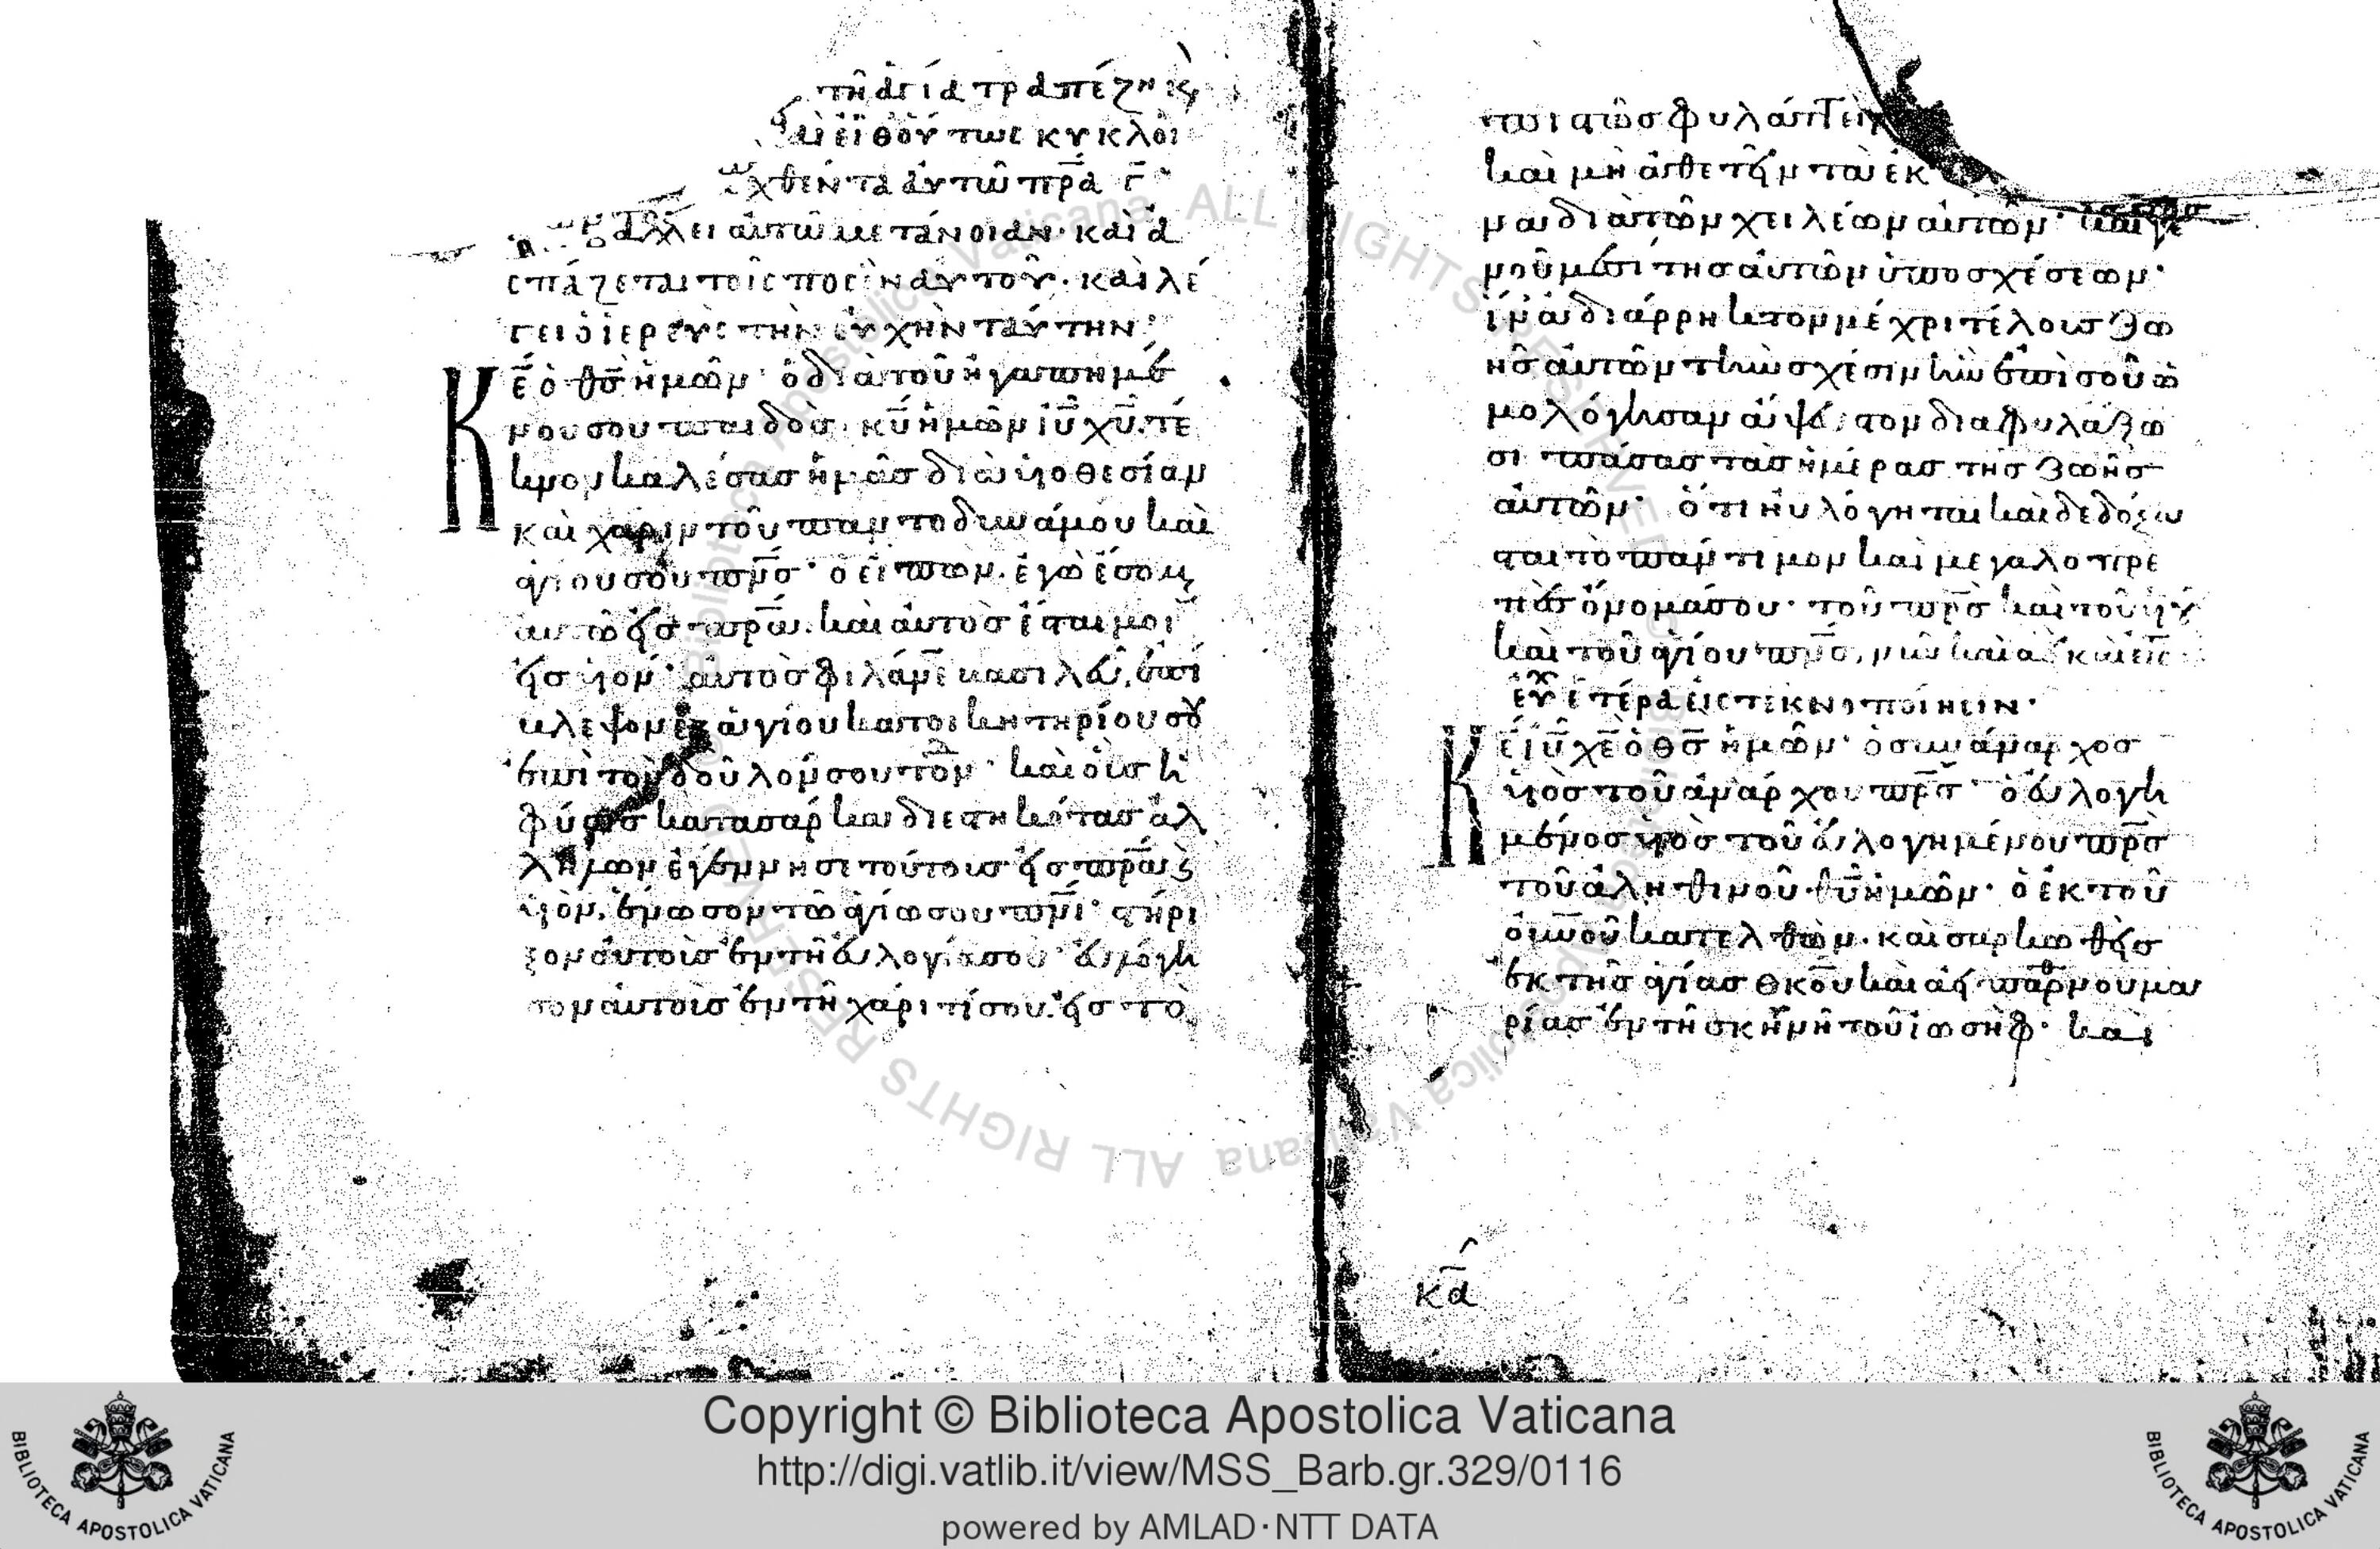 τῆ ἁγία τραπέζη κ
εἶθ οὕτως κυκλοῖ
χθέντα αὐτῶ πρα γ
βάλλει αὐτῶ μετάνοιαν· καὶ ἀ
σπάζεται τοῖς ποσὶν αὐτοῦ· καὶ λέ
γει ὁ ἱερεὺς τὴν εὐχὴν ταύτην·
Κε ὁ θς ἡμῶν· ὁ διὰ τοῦ ἠγαπημέ
νου σου παιδὸς κυ ἡμῶν ιυ χυ· τέ
κνον καλέσας ἡμᾶς διὰ υἱοθεσίαν
καὶ χάριν τοῦ παντοδυνάμου καὶ
ἁγίου σου πνς· ὁ εἰπών· ἐγὼ ἔσομαι
αὐτῶ εἰς πρα· καὶ αὐτὸς ἔσται μοι
εἰς υἱόν· αὐτὸς φιλάνε βασιλεῦ, ἐπί
βλεψον ἐξ ἁγίου κατοικητηρίου σου
ἐπὶ τοὺς δούλους σου τον· καὶ οὓς ἡ
φύσις κατὰ σάρκα διεστηκότας ἀλ
λήλων ἐγέννησε τούτους εἰς πρα κ
υἱὸν, ἕνωσον τῶ ἁγίω σου πνι· στήρι
ξον αὐτοὺς ἐν τῆ εὐλογία σου· εὐλόγη
σον αὐτοὺς ἐν τῆ χάριτί σου· εἰς τὸ
πιστῶς φυλάττειν
καὶ μὴ ἀθετεῖν τὰ ἐκ
να διὰ τῶν χειλέων αὐτῶν· καὶ γε
νοῦ μεσίτης αὐτῶν ὑποσχέσεων·
ἵνα ἀδιάρρηκτον μέχρι τέλους ζω
ῆς αὐτῶν τὴν σχέσιν ἣν ἐπὶ σοῦ ὡ
μολόγησαν ἄψευστον διαφυλάξω
σι πάσας τὰς ἡμέρας τῆς ζωῆς
αὐτῶν· ὅτι ηὐλόγηται καὶ δεδόξα
σται τὸ πάντιμον καὶ μεγαλοπρε
πὲς ὄνομά σου· τοῦ πρς καὶ τοῦ υἱοῦ
καὶ τοῦ ἁγίου πνς, νῦν καὶ ἀεὶ κ εἰς
εὐχ ἑτέρα εἰς τεκνοποίησιν·
Κε ιυ χε ὁ θς ἡμῶν· ὁ συνάναρχος
υἱὸς τοῦ ἀνάρχου πρς· ὁ εὐλογη
μένος υἱὸς τοῦ εὐλογημένου πρς
τοῦ ἀληθινοῦ θυ ἡμῶν· ὁ ἐκ τοῦ
οὐνοῦ κατελθὼν· καὶ σαρκωθεὶς
ἐκ τῆς ἁγίας θκου καὶ ἀεὶ παρθνου μα
ρίας ἐν τῆ σκηνῆ τοῦ ἰωσήφ· καὶ
κα
Copyright © Biblioteca Apostolica Vaticana
http://digi.vatlib.it/view/MSS_Barb.gr.329/0116
powered by AMLAD·NTT DATA
BIBLIOTECA APOSTOLICA VATICANA
BIBLIOTECA APOSTOLICA VATICANA